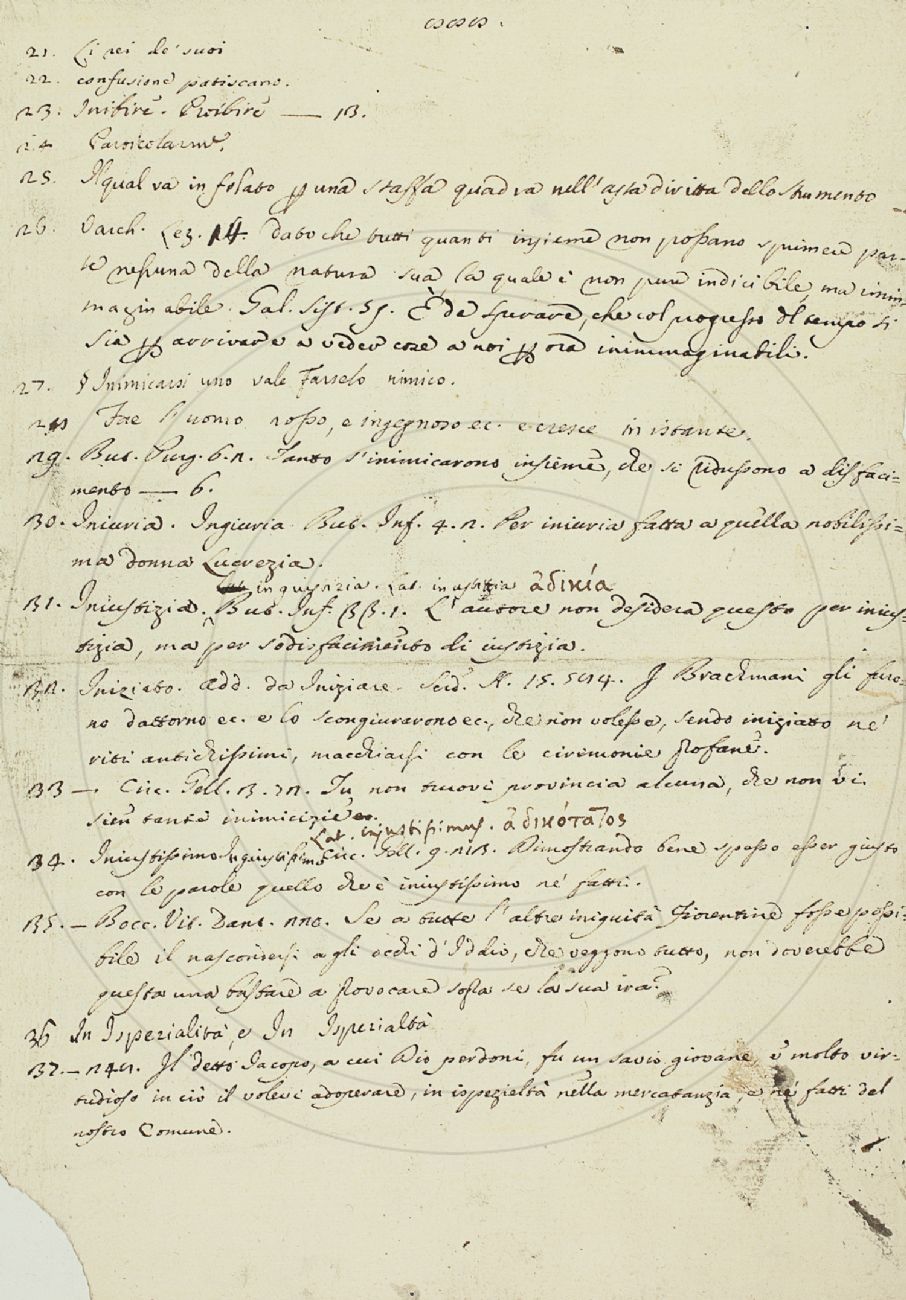 21. Li rei de' suoi
22. confusione patiscano.
23. Inibire. Proibire — 13.
24
25. Il qual va infilato p una staffa quadra nell'asta diritta dello strumento
26. Varch. Lez. 14. Dato che tutti quanti insieme non possano sprimere par-
te nessuna della natura sua, la quale è non pure indicibile, ma inim-
maginabile. Gal. Sist. 55. È da sperare, che col progresso del tempo si
sia p arrivare a veder cose a noi p ora inimmaginabili.
27. § Inimicarsi uno vale Farselo nimico.
Fae l'uomo rosso, e ingegnoso ec. e cresce in istante.
29. But. Purg. 6. 2. Tanto s'inimicarono insieme, che si ridussono a disfaci=
mento — 6.
30. Iniuria. Ingiuria But. Inf. 4. 2. Per iniuria fatta a quella nobilissi=
ma donna Lucrezia.
ingiustizia. Lat. iniustitia ἀδικία
31. Iniustizia. But. Inf. 33. 1. L'autore non desidera questo per inius-
tizia, ma per sodisfacimento di iustizia.
32. Iniziato. add. da Iniziare. Serd. St. 15. 594. I Brachmani gli furo-
no dattorno ec. e lo scongiurarono ec., che non volesse, sendo iniziato ne'
riti antichissimi, macchiarsi con le cirimonie profane.
33 —. Circ. Gell. 3. 72. Tu non truovi provincia alcuna, che non vi
sien tante inimicizie
Lat. injustissimus. ἀδικότατος
34. Iniustissimo Ingiustissimo Circ. Gell. 9. 213. Dimostrando bene spesso esser giusto
con le parole quello che è iniustissimo ne' fatti.
35. — Bocc. Vit. Dant. 220. Se a tutte l'altre iniquità Fiorentine fosse possi-
bile il nascondersi agli occhi d'Iddio, che veggono tutto, non doverebbe
questa una bastare a provocare sopra se la sua ira?
36 In Ispezialità, e In Ispezialtà
37. — 242. Il detto Iacopo, a cui Dio perdoni, fu un savio giovane, e molto vir-
tudioso in ciò il volevi adoperare, in ispezieltà nella mercatanzia, e ne' fatti del
nostro Comune.